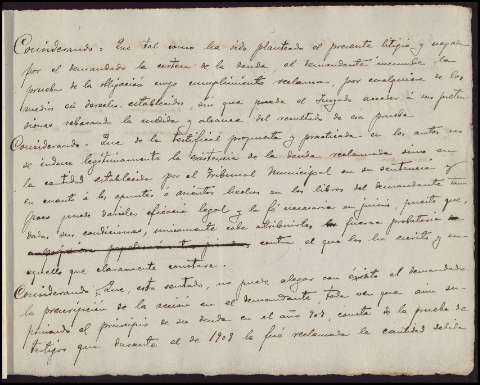 Considerando: Que tal como ha sido planteado el presente litigio y negada
por el demandado la certeza de la deuda, al demandante incumbe la
prueba de la obligación cuyo cumplimiento reclama, por cualquiera de los
medios en derecho establecidos, sin que pueda el Juzgado acceder á sus preten
siones rebasando la medida y alcance del resultado de esa prueba
Considerando: Que de la testifical propuesta y practicada en los autos no
se induce legítimamente la existencia de la deuda reclamada sino en
la cantidad establecida por el Tribunal Municipal en su sentencia y
en cuanto á los apuntes ó asientos hechos en los libros del demandante tam
poco puede dárseles eficacia legal y la fé necesaria en juicio, puesto que,
dadas sus condiciones, unicamente cabe atribuirles fuerza probatoria
contra el que los ha escrito y en
aquello que claramente constare.
Considerando: Que, esto sentado, no puede alegar con éxito el demandado
la prescripción de la acción en el demandante, toda vez que aun su-
poniendo el principio de su deuda en el año consta de la prueba de
testigos que durante el de 1903 le fué reclamada la cantidad debida